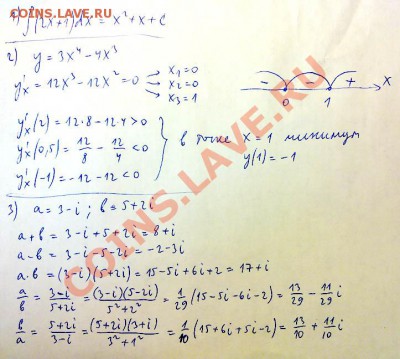 COINS.LAVE.RU
1) ∫(2x+1)dx = x² + x + C
2) y = 3x⁴ - 4x³
y'ₓ = 12x³ - 12x² = 0
x₁ = 0
x₂ = 0
x₃ = 1
- - + x
0 1
y'ₓ(2) = 12·8 - 12·4 > 0
y'ₓ(0,5) = 12/8 - 12/4 < 0
y'ₓ(-1) = -12 - 12 < 0
в точке x = 1 минимум
y(1) = -1
3) a = 3-i ; b = 5+2i
a+b = 3-i+5+2i = 8+i
a-b = 3-i-5-2i = -2-3i
a·b = (3-i)(5+2i) = 15-5i+6i+2 = 17+i
a/b = (3-i)/(5+2i) = (3-i)(5-2i)/(5²+2²) = 1/29 (15-5i-6i-2) = 13/29 - 11/29 i
b/a = (5+2i)/(3-i) = (5+2i)(3+i)/(3²+1²) = 1/10 (15+6i+5i-2) = 13/10 + 11/10 i
COINS.LAVE.RU